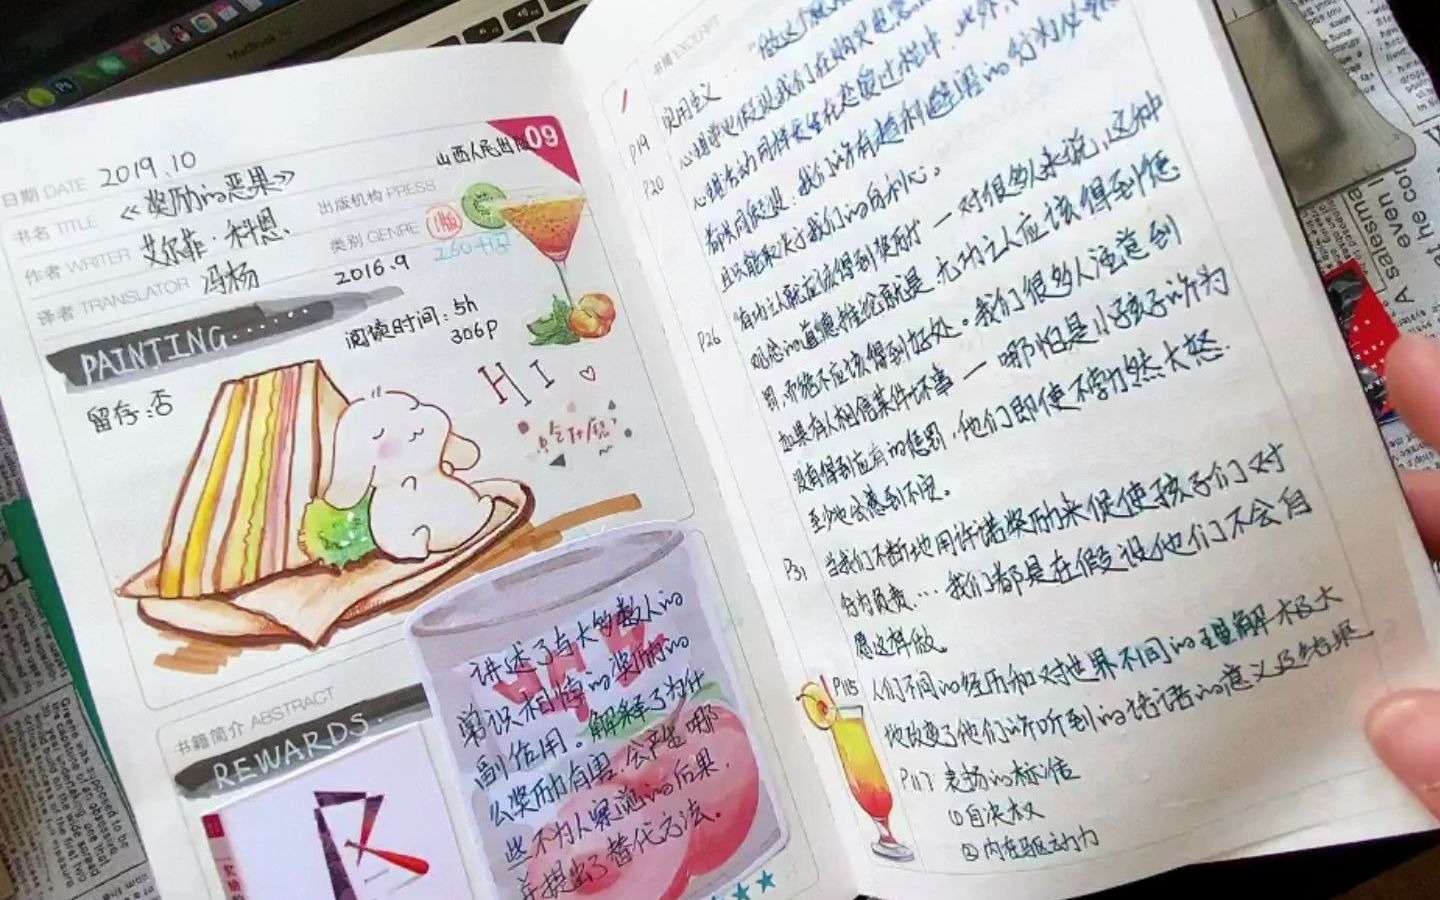 MacBook Air
日期 DATE 2019.10
09
书名 TITLE 《奖励的恶果》
出版机构 PRESS 山西人民出版
作者 WRITER 艾尔菲·科恩
类别 GENRE 1版
译者 TRANSLATOR 冯杨
2016.9
PAINTING......
阅读时间：5h
306P
留存：否
HI
书籍简介 ABSTRACT
REWARDS.
讲述了与大多数人的
常识相悖的奖励的
副作用。解释了为什
么奖励有害，会产生哪
些不为人察觉的后果，
并提出了替代方法。
书摘 EXCERPT
P19 实用主义
P20
都共同假设：我们所有趋利避害的
且只能取决于我们的自利心。
P26 有功之人就应该得到奖励时一对很多人来说，这种
观念的道德推论就是，无功之人应该得到惩
罚，而绝不应该得到好处。我们很多人注意到
如果有人相信某件坏事一哪怕是小孩子所为
没有得到应有的惩罚，他们即使不勃然大怒，
至少也会感到不安。
P31 当我们不断地用许诺奖励来促使孩子们对
行为负责...我们都是在假设他们不会自
愿这样做。
P115 人们不同的经历和对世界不同的理解极大
地改变了他们所听到的话语的意义及结果
P117 表扬的标准
①自决权
②内在驱动力